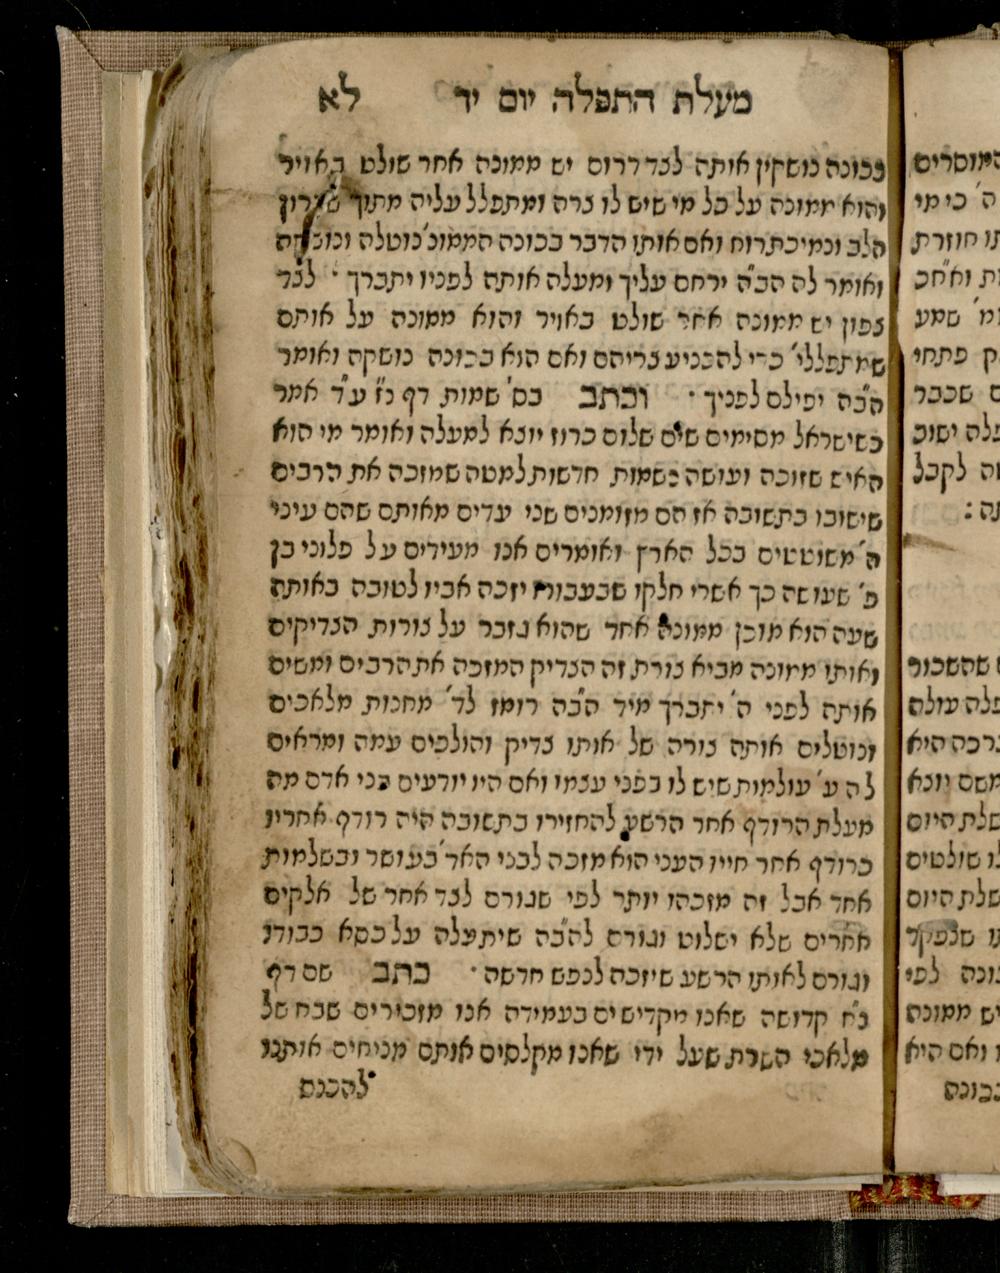 מעלת התפלה יום יד לא
בכונה נושקין אותה לצד דרום יש ממונה אחר שולט באויר
והוא ממונה על כל מי שיש לו צרה ומתפלל עליה מתוך
הלב ונמיכת רוח ואם אותו הדבר בכונה הממונ' נוטלה
ואומר לה הב"ה ירחם עליך ומעלה אותה לפניו יתברך · לצד
צפון יש ממונה אחר שולט באויר והוא ממונה על אותם
שמתפללי' כדי להכניע צריהם ואם הוא בכונה נושקה ואומר
הב"ה יפילם לפניך · וכתב בס' שמות דף נ"ז ע"ד אמר
כשישראל מסימים שים שלום כרוז יוצא למעלה ואומר מי הוא
האיש שזוכה ועושה נשמות חדשות למטה שמזכה את הרבים
שישובו בתשובה אז הם מזומנים שני עדים מאותם שהם עיני
ה' משוטטים בכל הארץ ואומרים אנו מעידים על פלוני בן
פ' שעושה כך אשרי חלקו שבעבורו יזכה אביו לטובה באותה
שעה הוא מוכן ממונה אחד שהוא גזבר על צורות הצדיקים
ואותו ממונה מביא צורת זה הצדיק המזכה את הרבים ומשים
אותה לפני ה' יתברך מיד הב"ה רומז לד' מחנות מלאכים
ונוטלים אותה צורה של אותו צדיק והולכים עמה ומראים
לה ע' עולמות שיש לו בפני עצמו ואם היו יודעים בני אדם מה
מעלת הרודף אחר הרשע להחזירו בתשובה היה רודף אחריו
כרודף אחר חייו העני הוא מזכה לבני האד' בעושר ובשלמות
אחד אבל זה מזכהו יותר לפי שגורם לצד אחר של אלקים
אחרים שלא ישלוט וגורם להב"ה שיתעלה על כסא כבודו
וגורם לאותו הרשע שיזכה לנפש חדשה · כתב שם דף
נ"ח קדושה שאנו מקדישים בעמידה אנו מזכירים שבח של
מלאכי השרת שעל ידי שאנו מקלסים אותם מניחים אותנו
להכנס
המוסרים
ה' כי מי
תו חוזרת
ות ואח"כ
ומ' שמע
ק פתחי
ם שכבר
ישוב
לקבל
תה :
שהשכור
פלה עולה
ברכה היא
משם יוצא
שלת היום
ו שולטים
שלת היום
שנפקד
ונה לפי
יש ממונה
ואם היא
בכונה